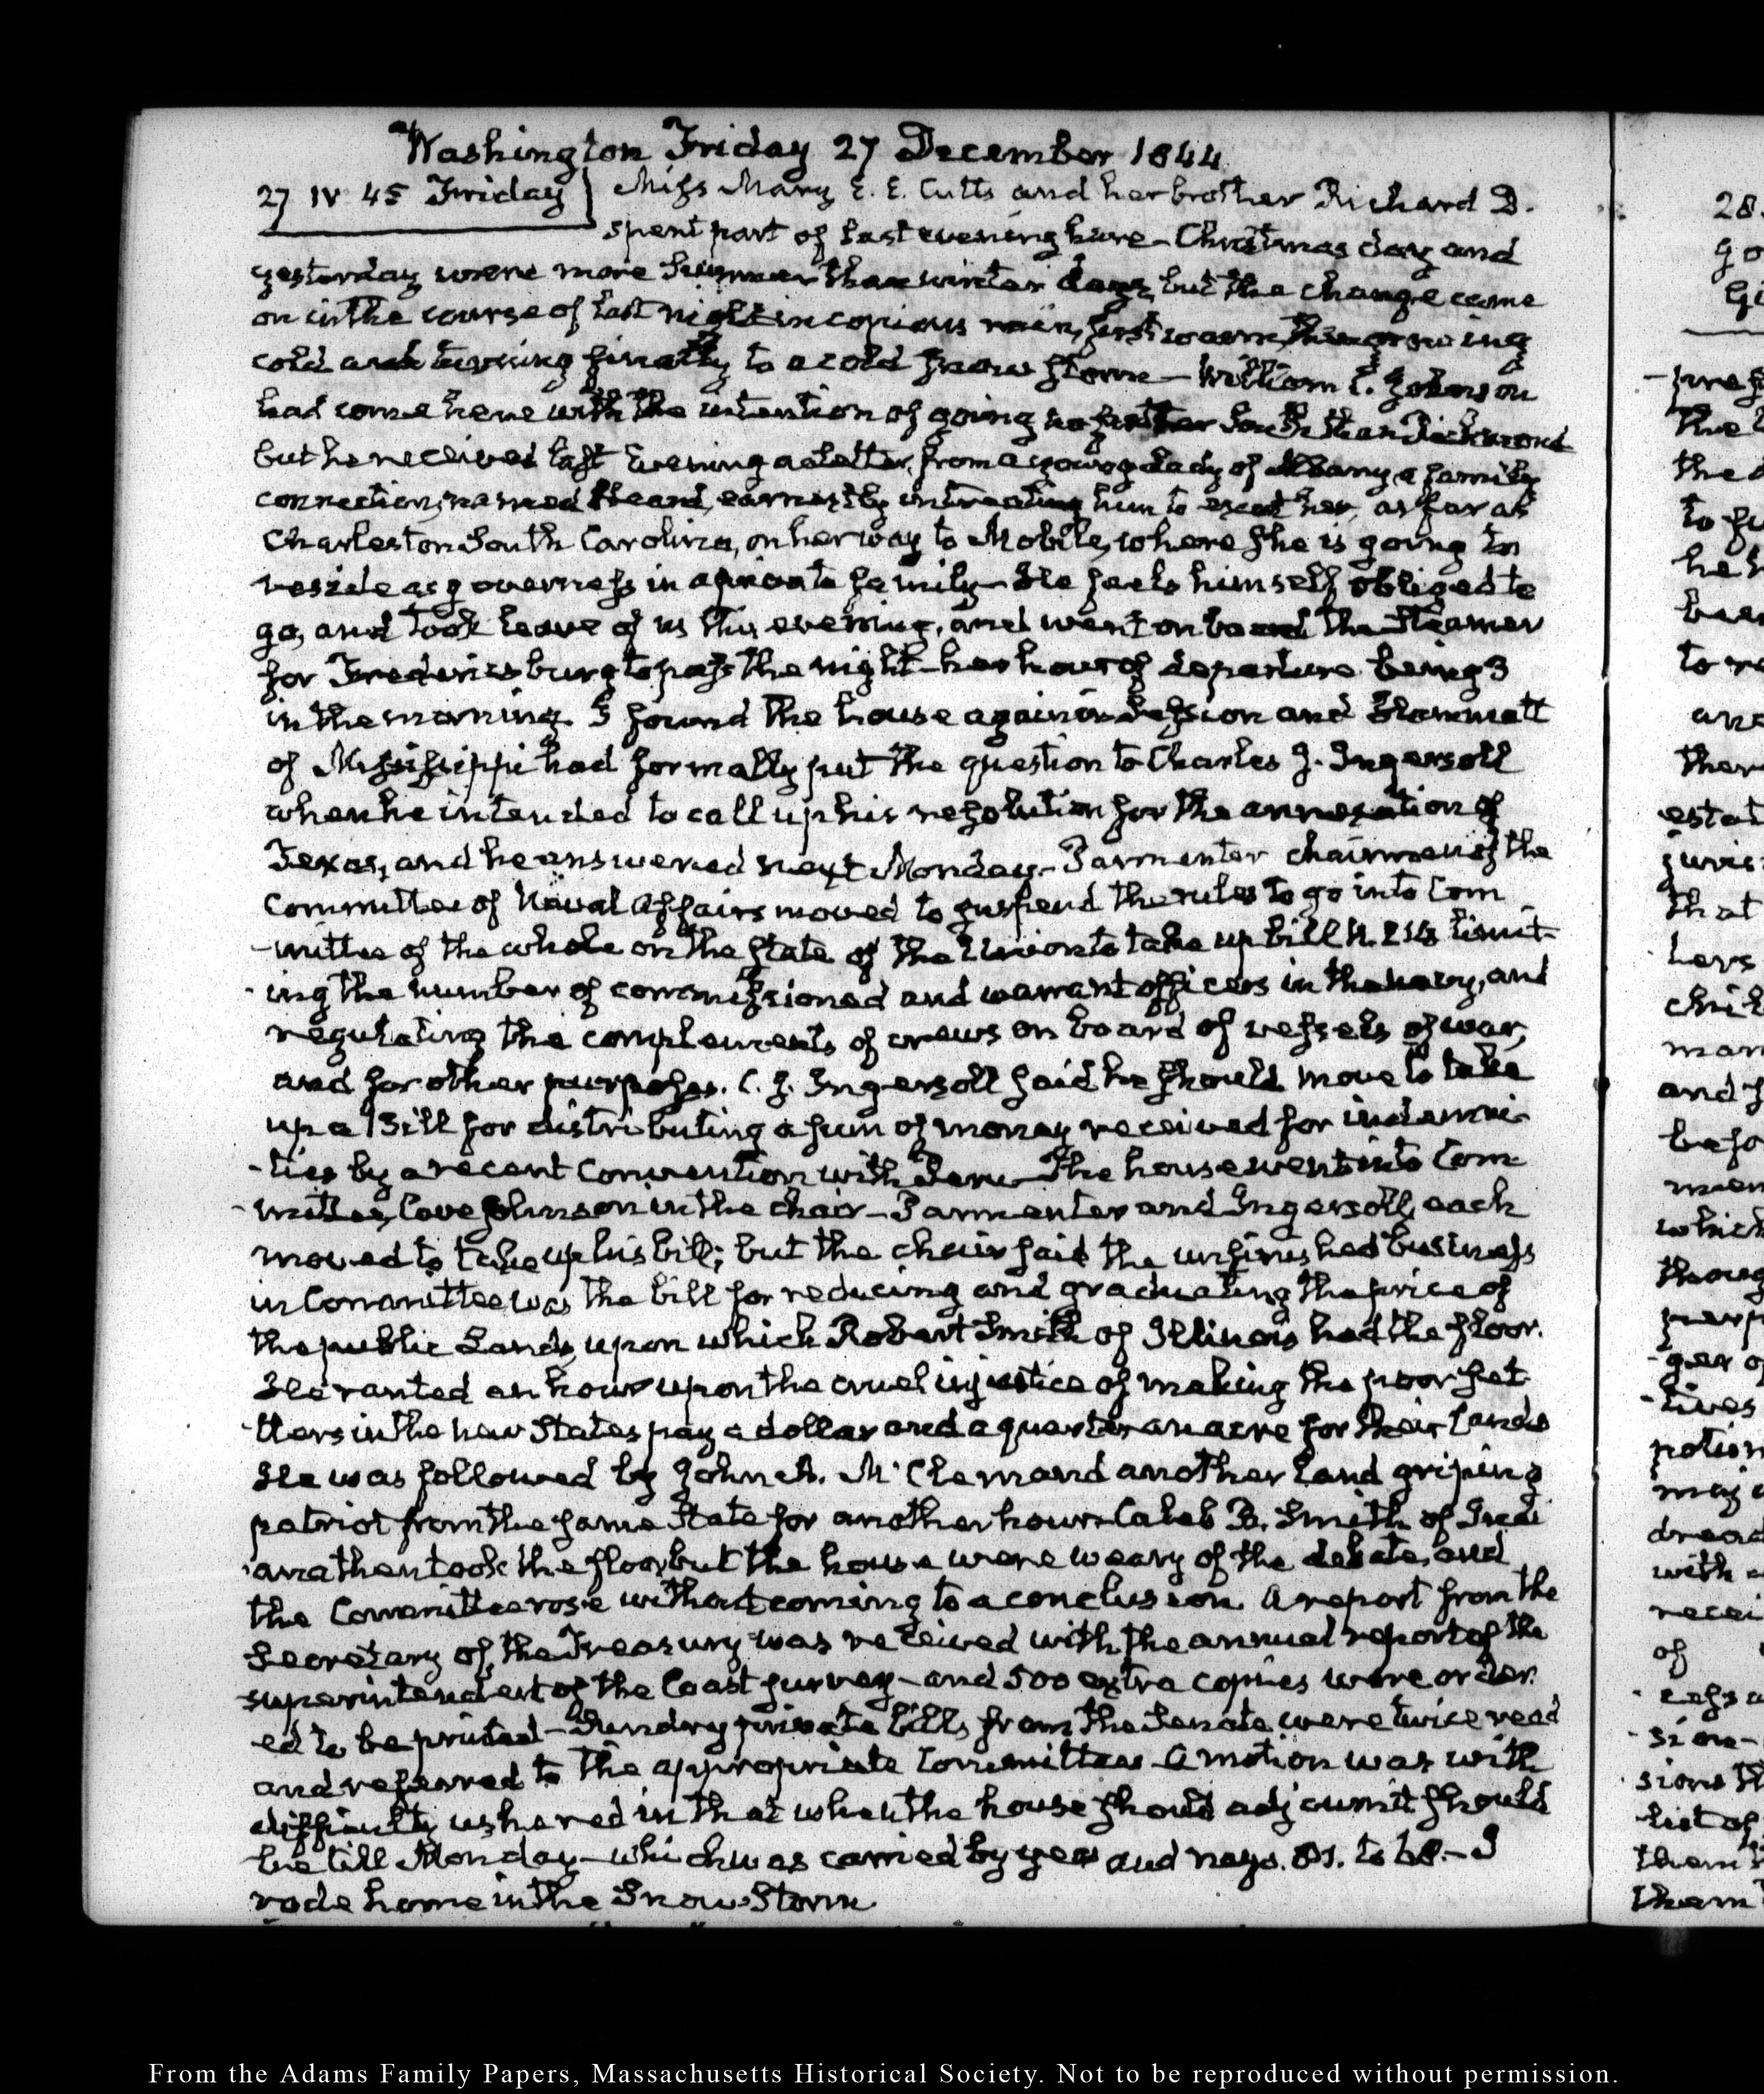 Washington Friday 27 December 1844
27 IV 45 Friday} Miss Mary E. E. Cutts and her brother Richard D.
spent part of last evening here – Christmas day and
yesterday were more Summer than winter days, but the change came
on in the course of last night in copious rain, first warm, then growing
cold and turning finally to a cold snow storm – William C. Johnson
had come here with the intention of going no further South than Richmond
but he received last Evening a letter from a young Lady of Albany, a family
connection, named Heand, earnestly intreating him to escort her, as far as
Charleston South Carolina, on her way to Mobile, where she is going to
reside as governess in a private family – He feels himself obliged to
go, and took leave of us this evening, and went on board the Steamer
for Fredericsburg to pass the night – her hour of departure being 3
in the morning. I found the house again in Session and Hammett
of Mississippi had formally put the question to Charles J. Ingersoll
when he intended to call up his resolution for the annexation of
Texas, and he answered next Monday – Parmenter chairman of the
Committee of Naval Affairs moved to suspend the rules to go into Com
-mittee of the whole on the state of the Union to take up bill N. limit-
-ing the number of commissioned and warrant officers in the navy, and
regulating the complements of crews on board of vessels of war,
and for other purposes. C. J. Ingersoll said he should move to take
up a Bill for distributing a sum of money received for indemni-
-ties by a recent Convention with Peru – The house went into Com-
-mittee, Cave Johnson in the chair – Parmenter and Ingersoll, each
moved to take up his bill; but the chair said the unfinished business
in Committee was the bill for reducing and graduating the price of
the public Lands, upon which Robert Smith of Illinois had the floor.
He ranted an hour upon the cruel injustice of making the poor set-
-tlers in the new States pay a dollar and a quarter an acre for their Lands
He was followed by John A. McClernand another land griping
patriot from the same State for another hour – Caleb B. Smith of Indi
-ana then took the floor, but the house were weary of the debate, and
the Committee rose without coming to a conclusion. A report from the
Secretary of the Treasury was received with the annual report of the
superintendent of the Coast survey – and 500 extra copies were order-
ed to be printed – Sundry private bills from the Senate were twice read
and referred to the appropriate Committees – A motion was with
difficulty ushered in that when the house should adjourn it should
be till Monday – which was carried by yeas and nays. 81. to 68. – I
rode home in the Snow-Storm
From the Adams Family Papers, Massachusetts Historical Society. Not to be reproduced without permission.